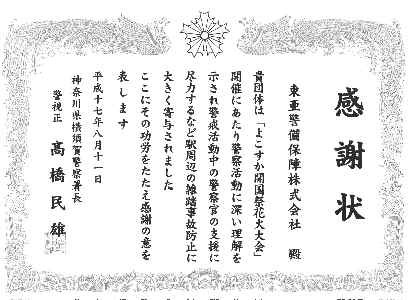 感謝状
東亜警備保障株式会社 殿
貴団体は「よこすか開国祭花火大会」
開催にあたり警察活動に深い理解を
示され警戒活動中の警察官の支援に
尽力するなど駅周辺の雑踏事故防止に
大きく寄与されました
ここにその功労をたたえ感謝の意を
表します
平成十七年八月十一日
神奈川県横須賀警察署長
警視正 高橋民雄